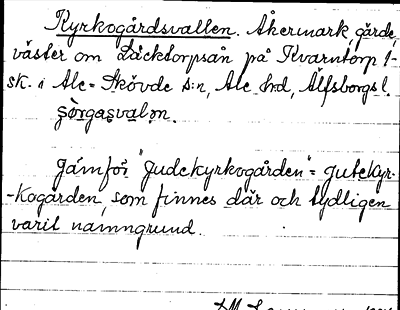 Kyrkogårdsvallen. Åkermark, gärde,
väster om Läcktorpsån på Kvarntorp 1-
sk. i Ale-Skövde s:n, Ale hd, Älfsborgs l.
şörgasvalın.
Jämför "Judekyrkogården" = gutekyr-
-kogården, som finnes där och tydligen
varit namngrund.